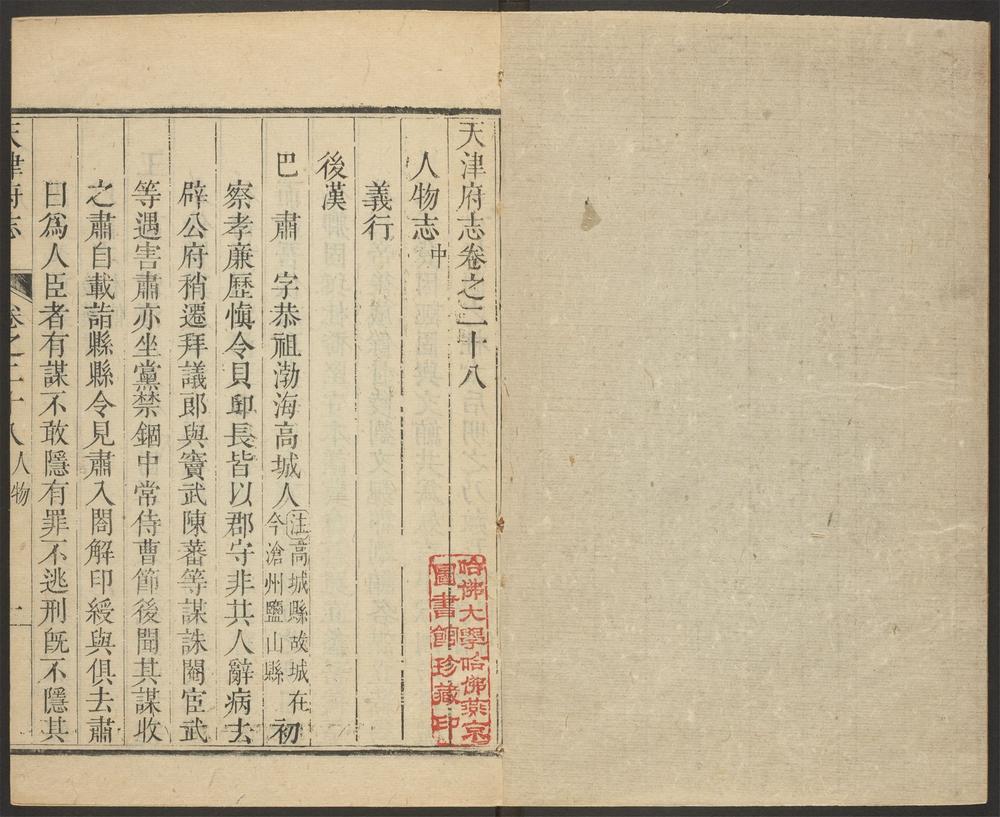 天津府志卷之二十八
人物志中
義行
後漢
巴肅字恭祖渤海高城人注高城縣故城在今滄州鹽山縣初
察孝廉歷慎令貝邱長皆以郡守非其人辭病去
辟公府稍遷拜議郎與竇武陳蕃等謀誅閹宦武
等遇害肅亦坐黨禁錮中常侍曹節後聞其謀收
之肅自載詣縣縣令見肅入閤解印綬與俱去肅
曰爲人臣者有謀不敢隱有罪不逃刑旣不隱其
天津府志 卷之二十八 人物 一
哈佛大學哈佛燕京
圖書館珍藏印